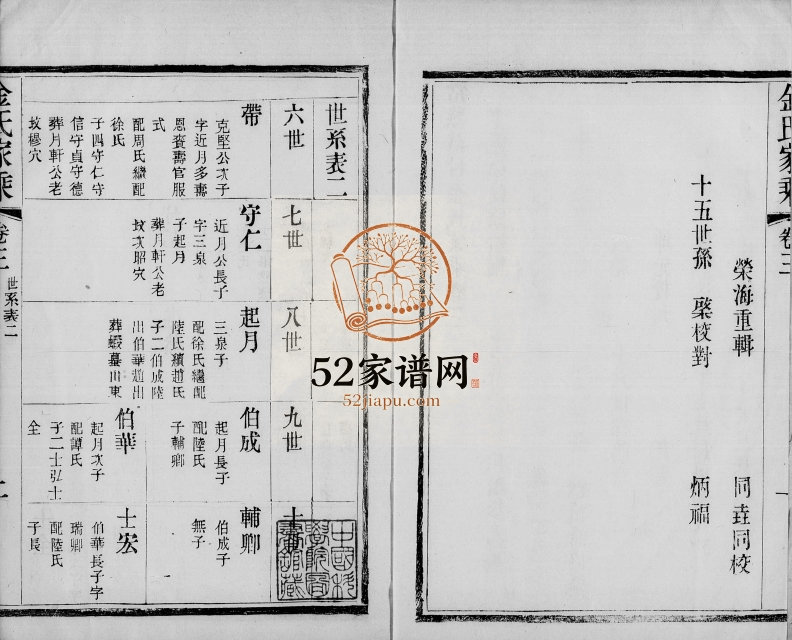 金氏家乘
卷三
一
榮海重輯
同垚同校
十五世孫
棨校對
炳福
52家谱网
52jiapu.com
世系表二
六世
七世
八世
九世
帶
克堅公次子
字近月多壽
恩賚壽官服
式
配周氏繼配
徐氏
子四守仁守
信守貞守德
葬月軒公老
坟穆穴
守仁
近月公長子
字三泉
子起月
葬月軒公老
坟次昭穴
起月
三泉子
配徐氏繼配
陸氏續趙氏
子二伯成陸
出伯華趙出
葬蝦蟇山東
伯成
起月長子
配陸氏
子輔卿
伯華
起月次子
配譚氏
子二士弘士
全
輔卿
伯成子
無子
士宏
伯華長子字
瑞卿
配陸氏
子長
金氏家乘
卷三
世系表二